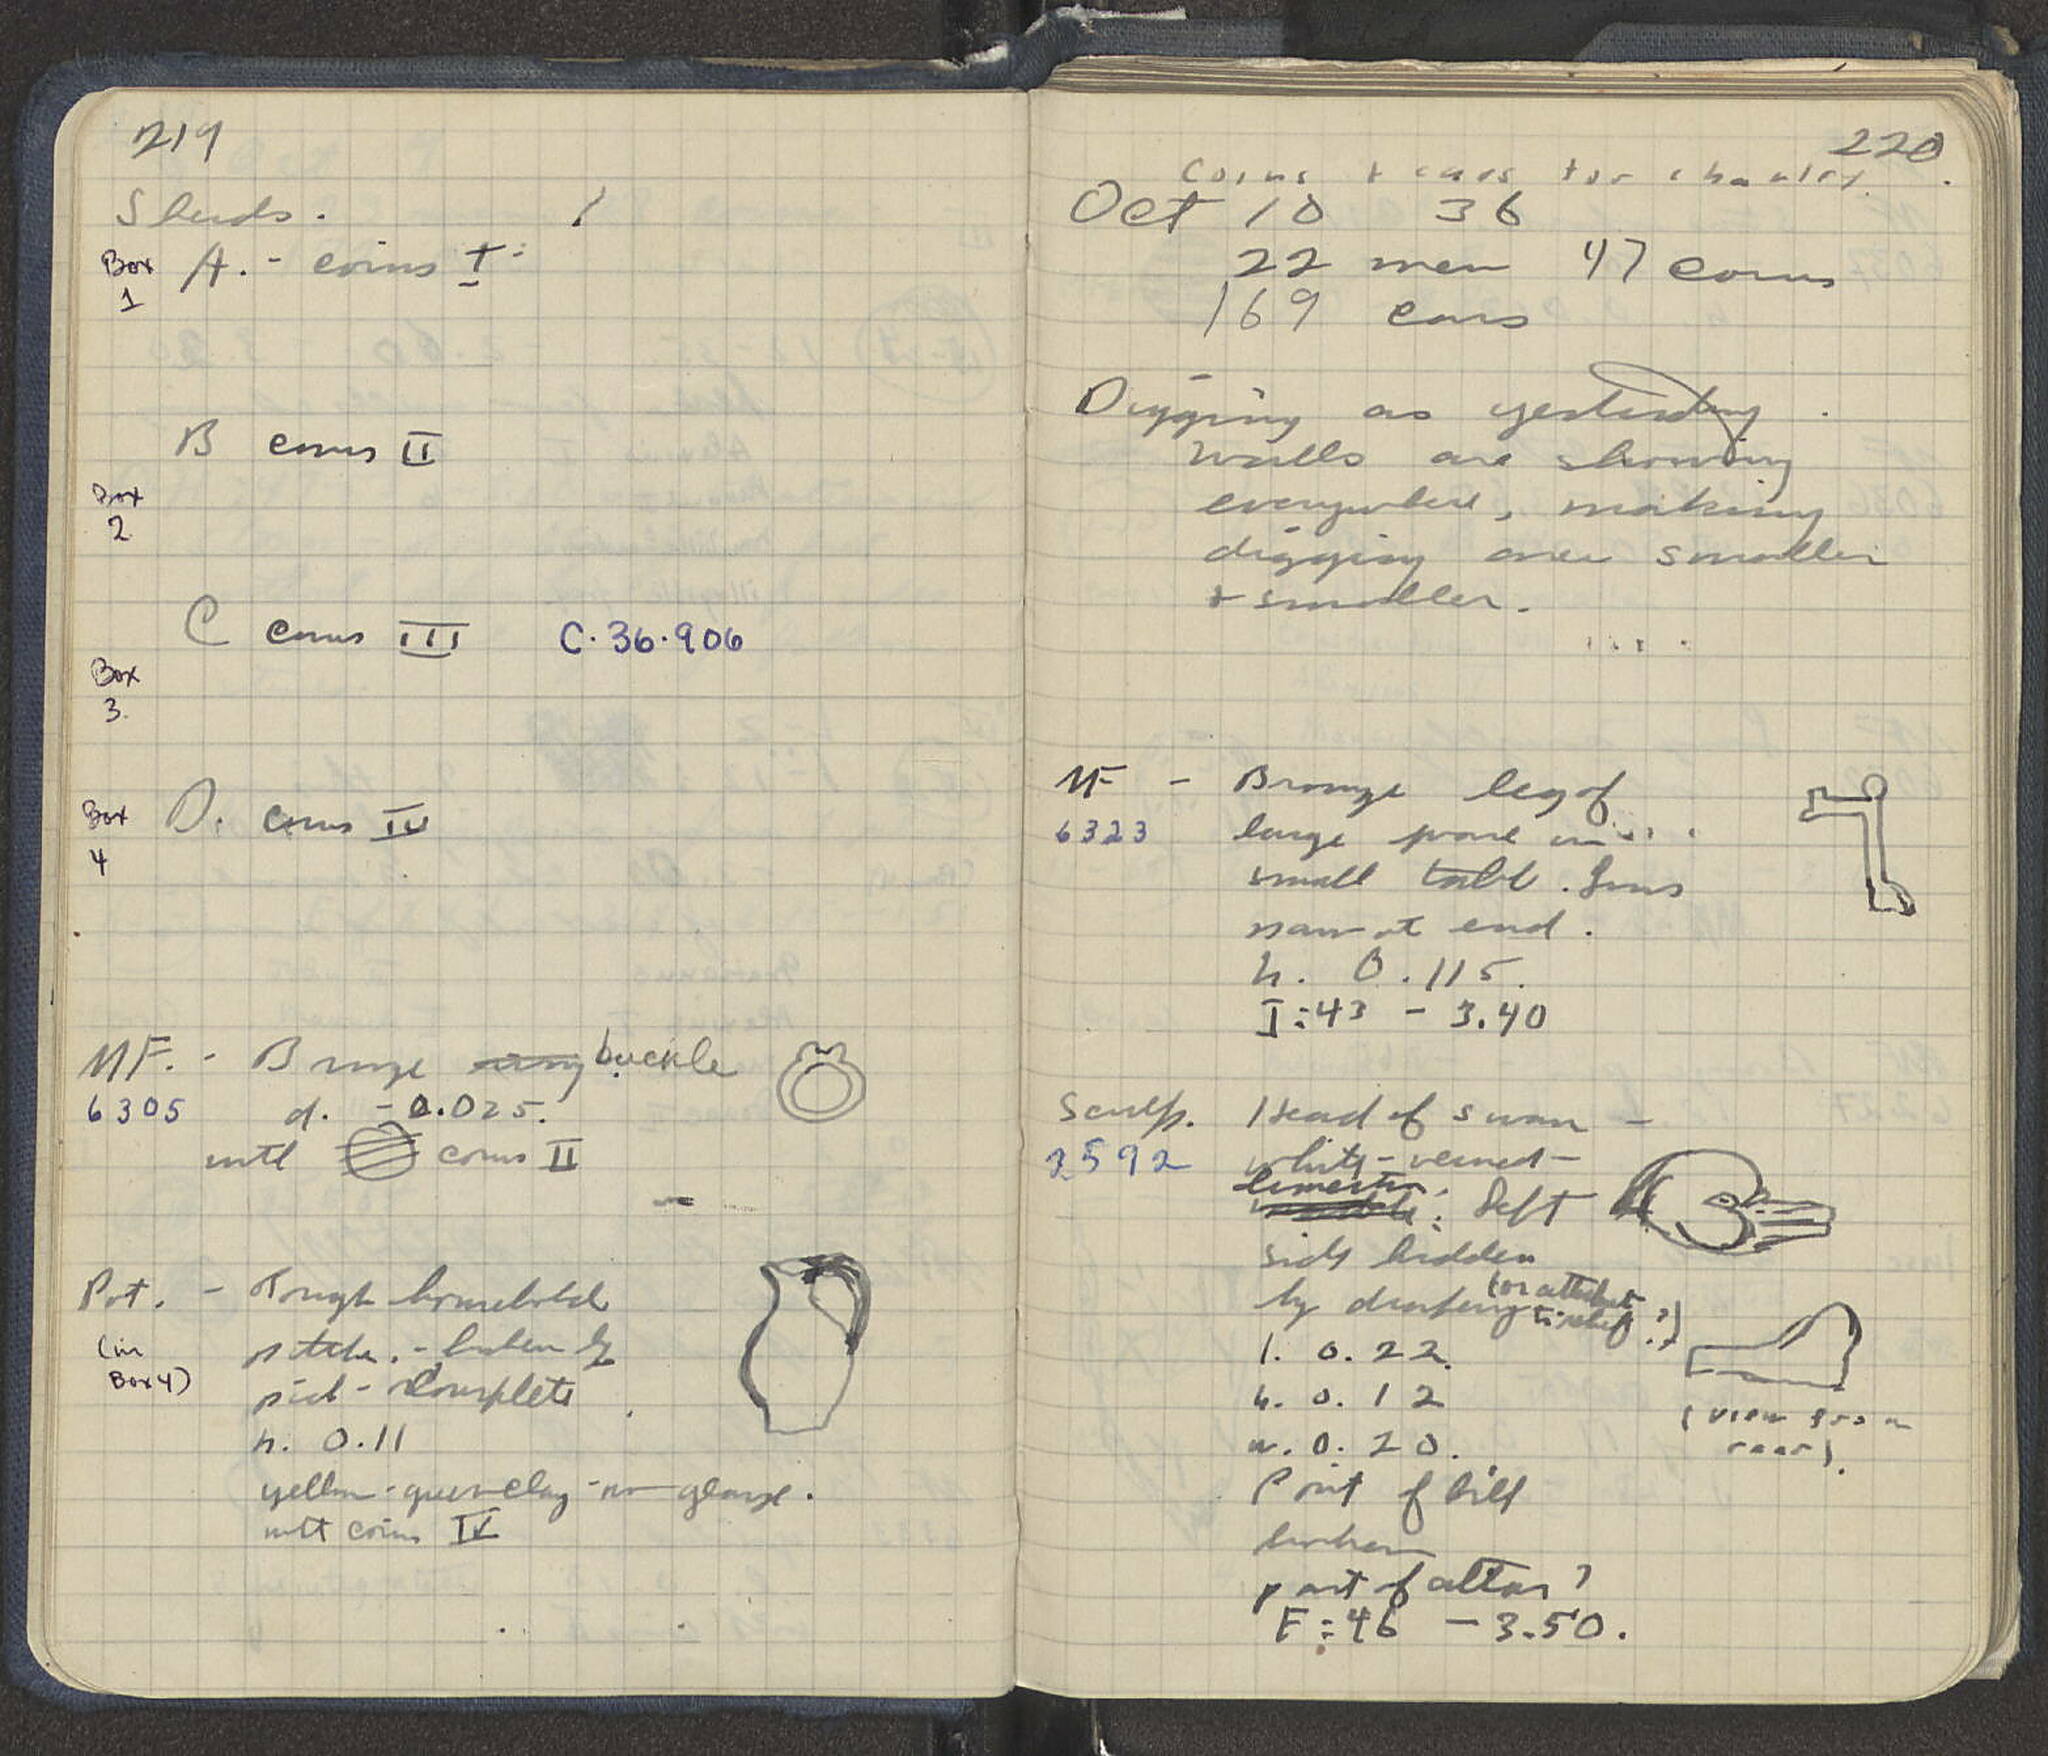 219
Sherds.
Box 1 A. - coins I
B coins II
Box 2
C coins III C.36.906
Box 3.
Box 4 D. coins IV
MF. - Bronze ring buckle
6305 d. - 0.025.
with coins II
Pot. - Rough household
(in Box 4) pitcher. - broken by
pick - complete
h. 0.11
yellow-green clay - no glaze.
with coins IV
220
Coins & cars for
Oct 10 36
22 men 47 coins
169 cars
Digging as yesterday.
Walls are showing
everywhere, making
digging area smaller
& smaller.
MF - Bronze leg of
6323 large
small table. Lions
paw at end.
h. 0.115.
I:43 - 3.40
Sculp. Head of swan -
2592 white-veined-
limestone
marble: Left
side hidden
by drapery (or attached to relief?)
l. 0.22.
h. 0.12
w. 0.20.
(view from
rear).
Point of bill
broken
part of altar?
F:46 - 3.50.